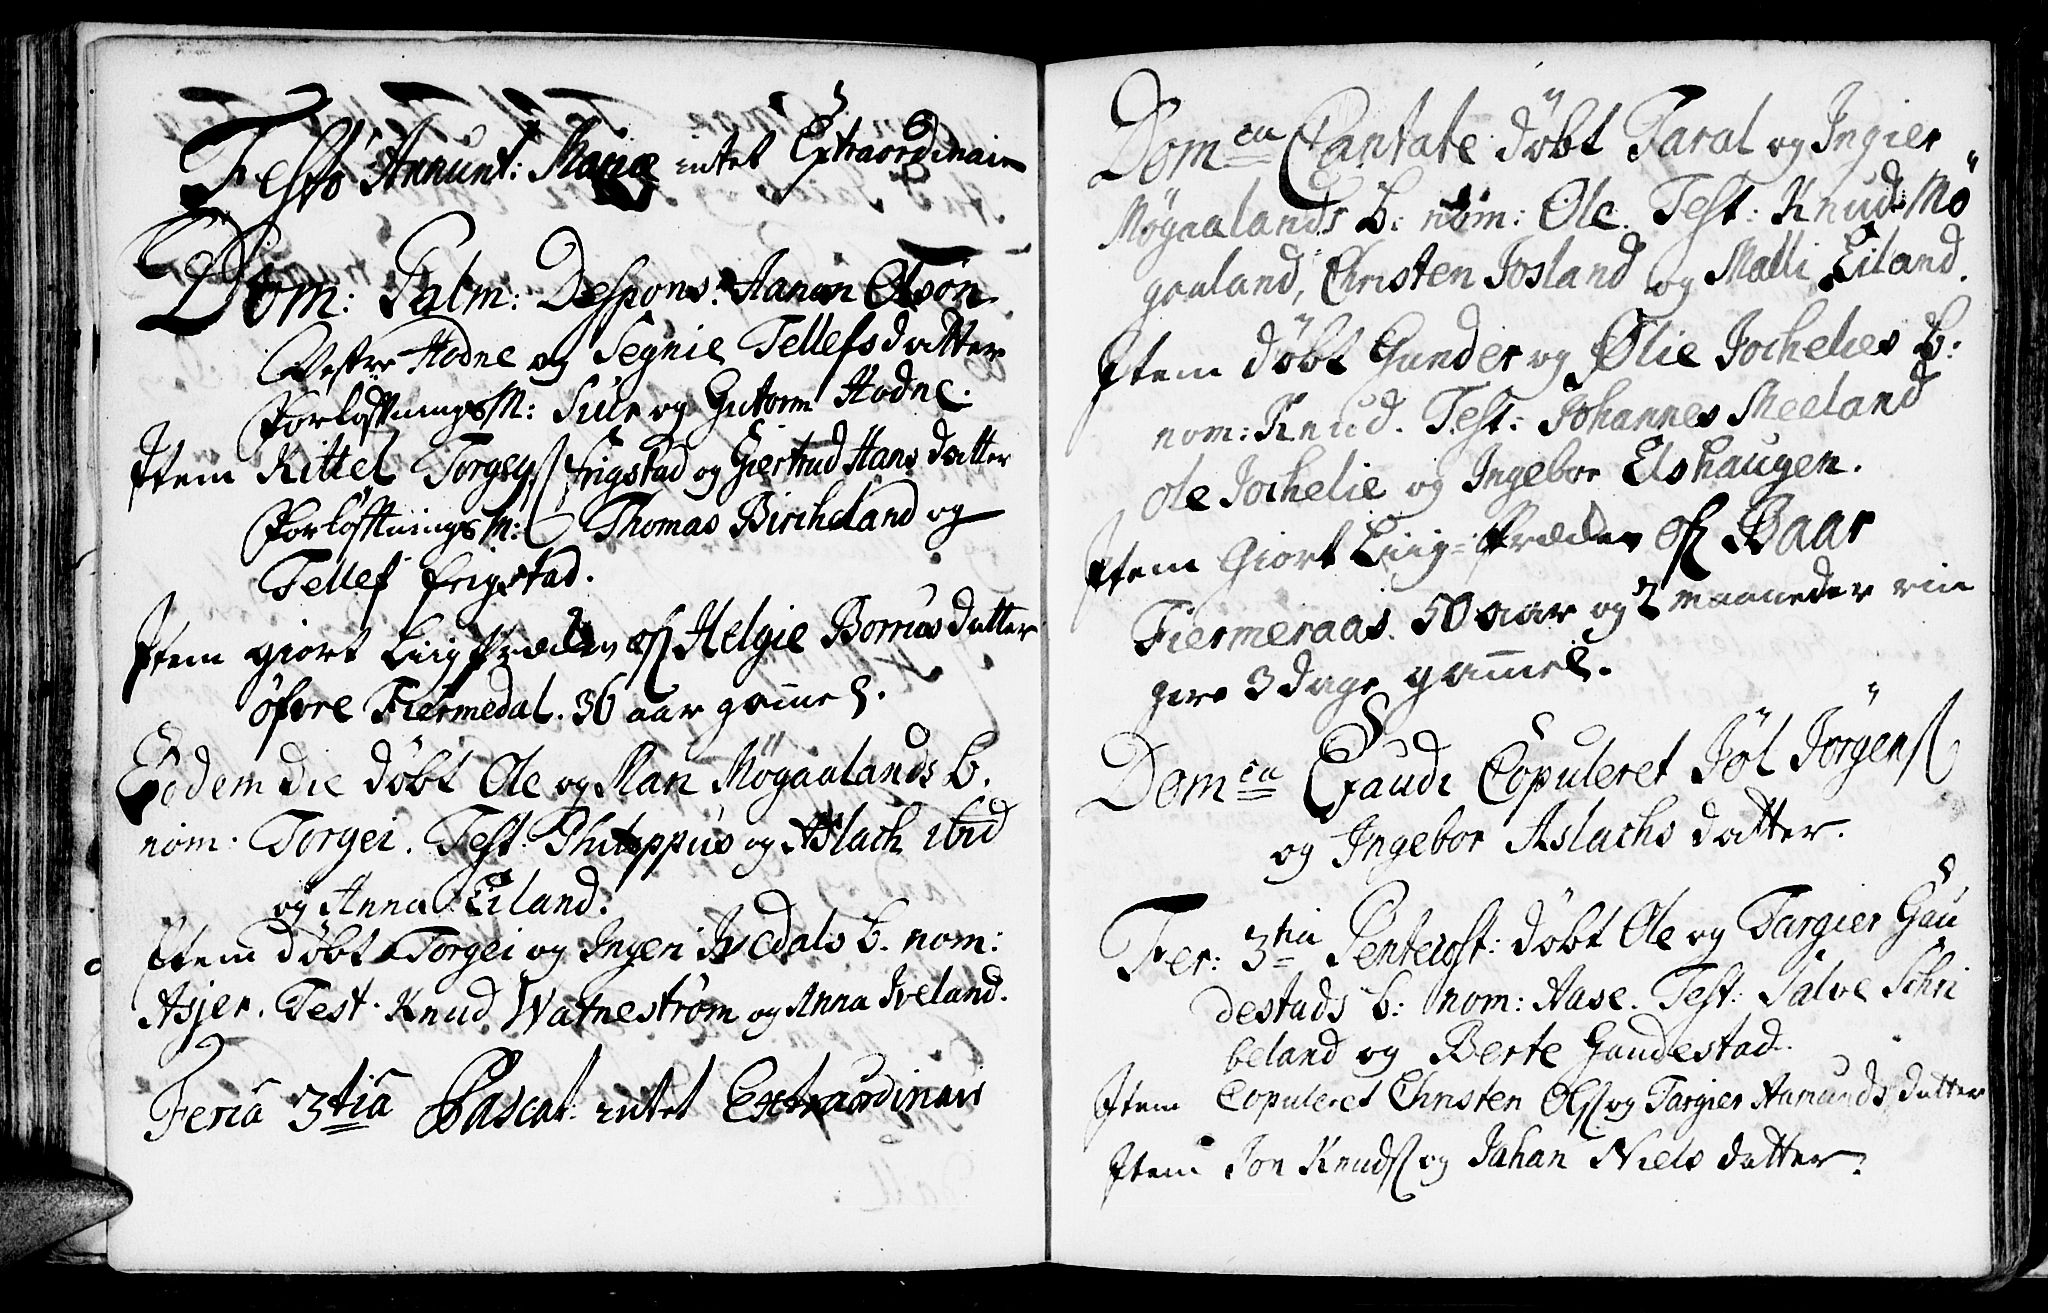 Festo Annunt: Mariæ intet Extraordinair
Dom: Palm: Despons: Aanon Olsøn
Vestre Hodne og Segnie Tellefsdatter
ForloftningsM: Siur og Gutorm Hodne.
Item Kittel Torgeyſ frigstad og Giertrud Hans datter
ForloftningsM: Thomas Bircheland og
Tellef frigstad.
Item giort Liig Præd:en ofr Helgie Borrias datter
øfvre Fiermedal. 36 aar gammel.
Eodem die døbt Ole og Mari Møgaalands b.
nom. Torgei. Test: Philippus og Aslach ibid
og Anna Eiland.
Item døbt Torgei og Ingeri Ivedals b. nom:
Asjer. Test. Knud Watnestrøm og Anna Iveland.
Feria 3tia Pascat: intet Extraordinair
Domca Cantate døbt Taral og Ingier
Møgaalands b: nom: Ole. Test: Knud Mø
gaaland, Christen Josland og Malli Eiland.
Item døbt Gunder og Ølie Jochelies b:
nom: Knud. Test: Johannes Meeland
Ole Jochelie og Ingebor Elshaugen.
Item Giort Liig-Præd:en ofr Baar
Fiermeraas. 50 aar og 2 maaneder
3 dage gammel.
Domca Exaudi Copuleret Jøl Jørgenſ
og Ingebor Aslachs datter.
Fer: 3tia Pentecost: døbt Ole og Targier Gau
destads b: nom: Aase. Test: Salve Schri
beland og Berte Gaudestad.
Item Copuleret Christen Olſ og Targier Aamunds datter
Item Jon Knudſ og Johan Niels datter.